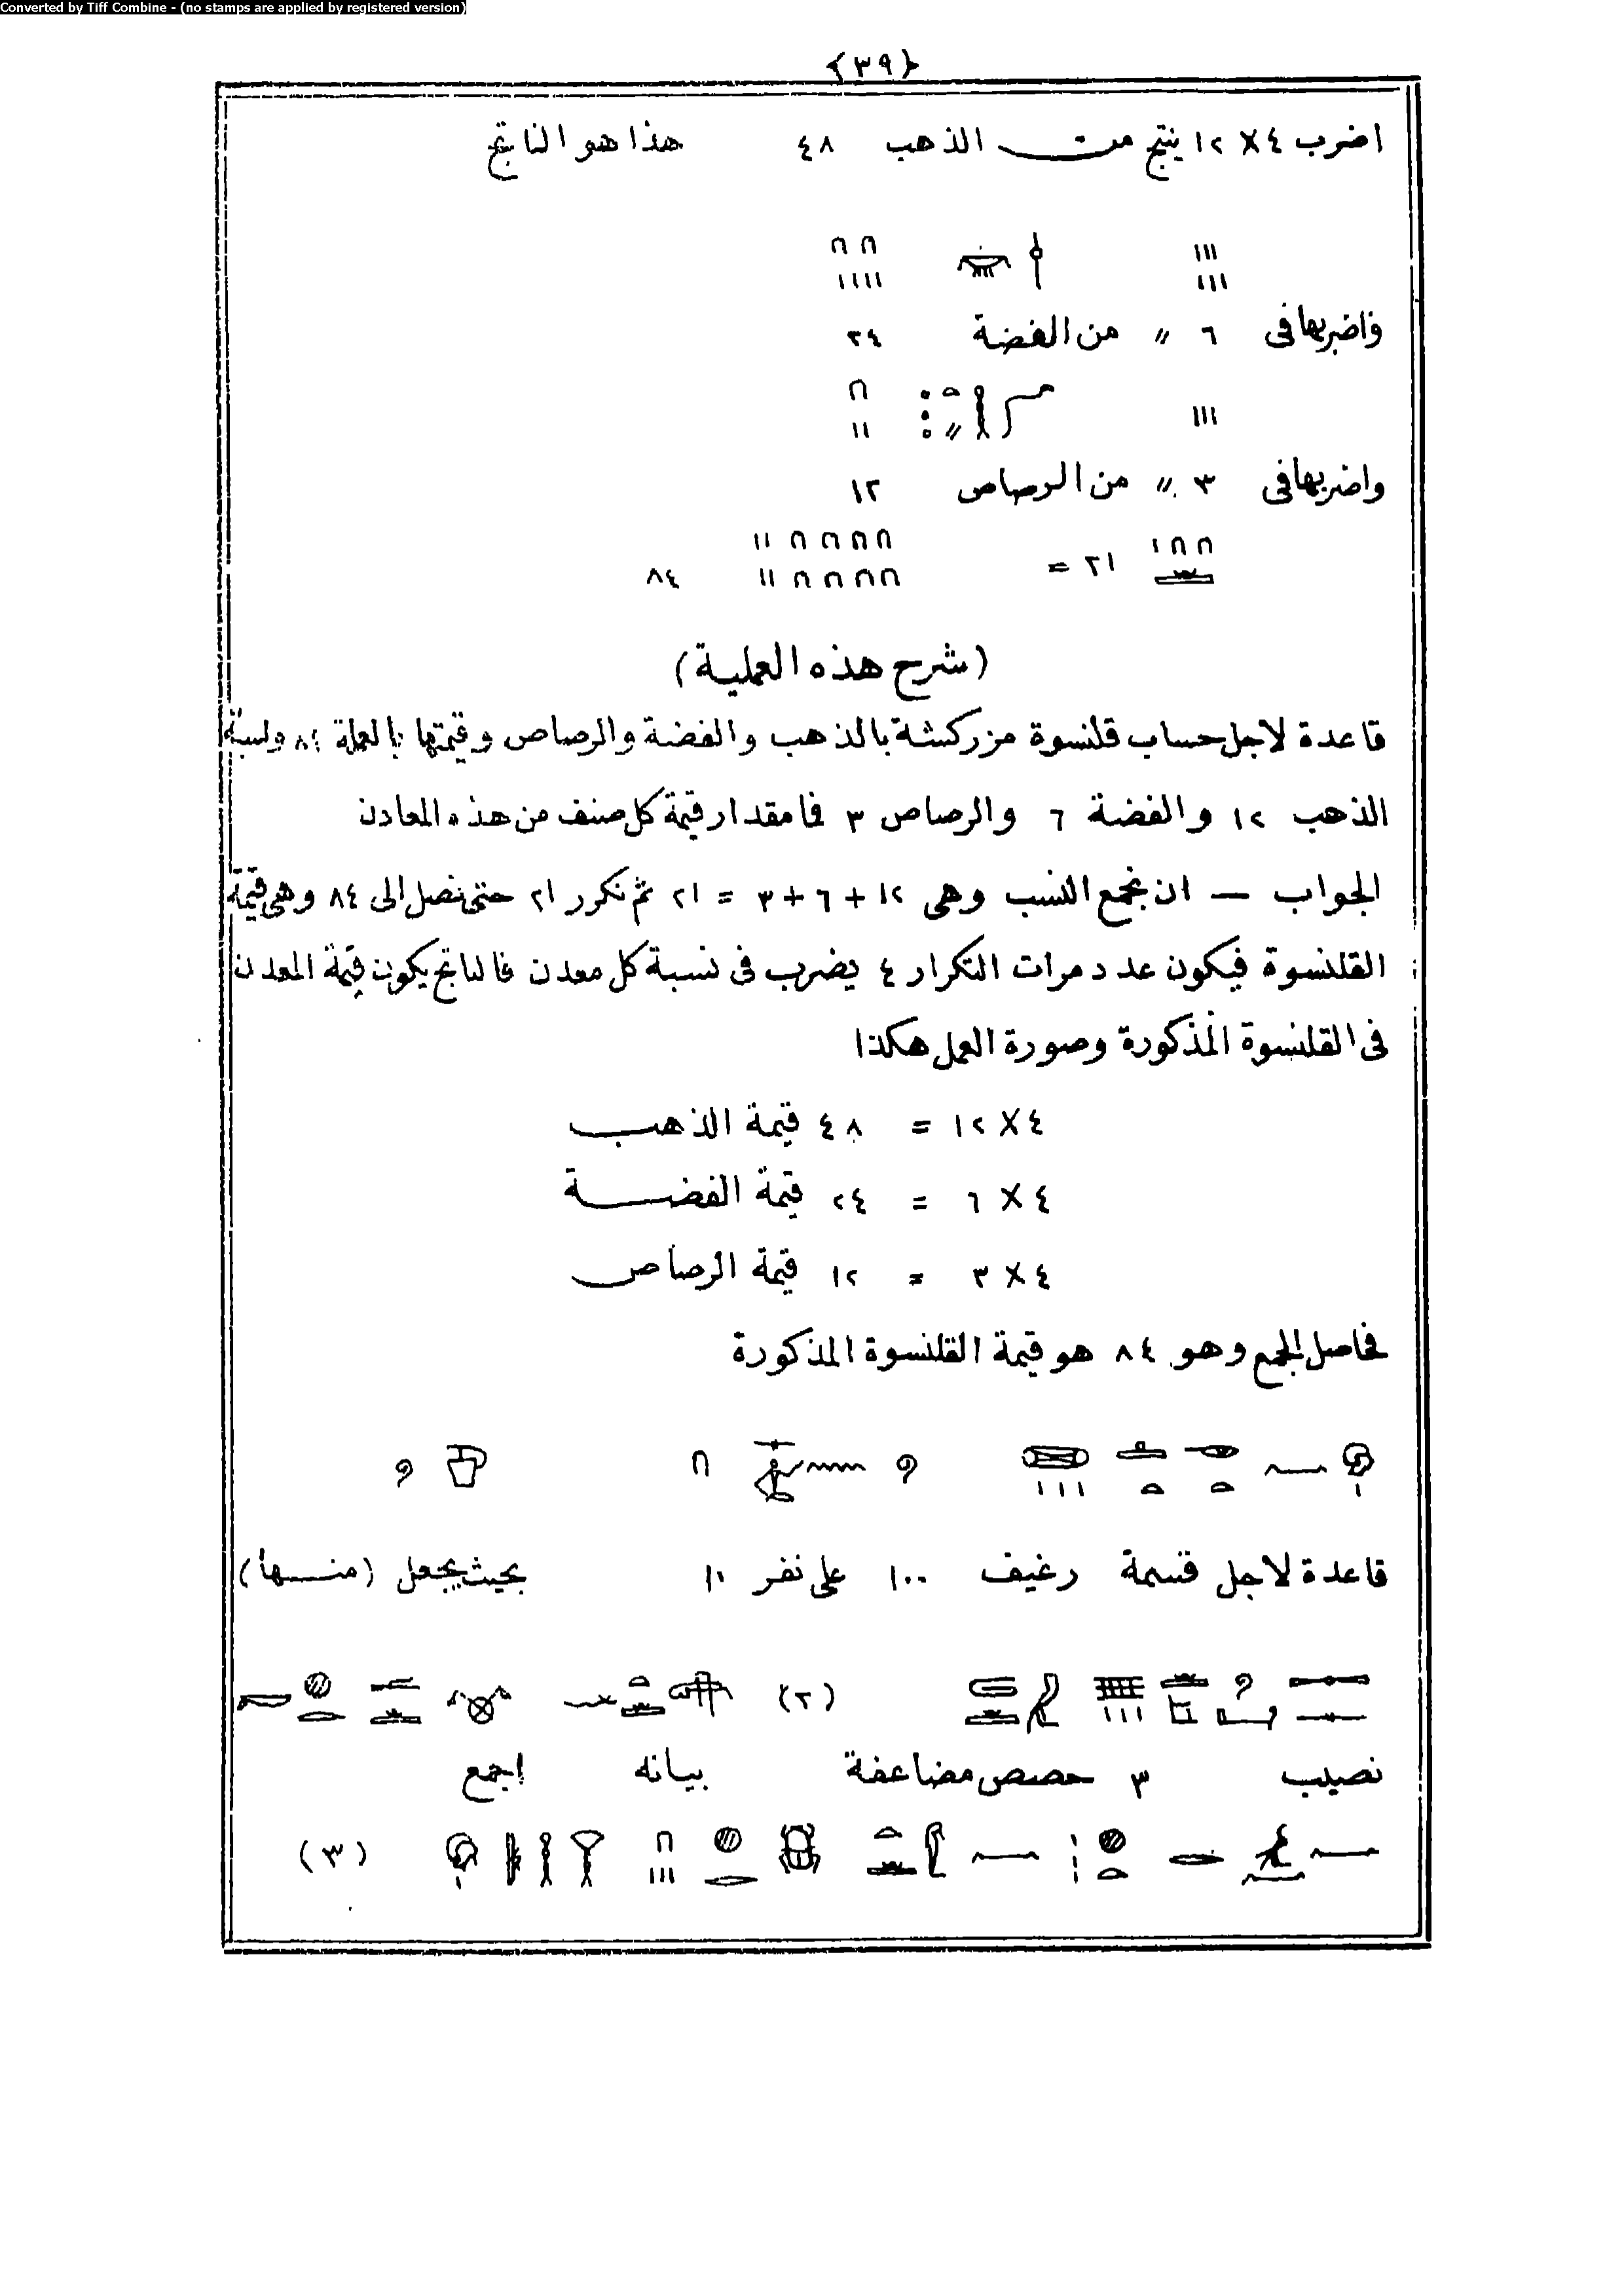 Converted by Tiff Combine - (no stamps are applied by registered version)
{٣٩}
اضرب ٤ × ١٢ ينتج من الذهب ٤٨ هذا هو الناتج
واضربها فى ٦ " من الفضة ٢٤
واضربها فى ٣ " من الرصاص ١٢
٢١ = ٨٤
(شرح هذه العملية)
قاعدة لاجل حساب قلنسوة مزركشة بالذهب والفضة والرصاص وقيمتها بالعملة ٨٤ ونسبة
الذهب ١٢ والفضة ٦ والرصاص ٣ فما مقدار قيمة كل صنف من هذه المعادن
الجواب — ان نجمع النسب وهى ١٢ + ٦ + ٣ = ٢١ ثم نكرر ٢١ حتى نصل الى ٨٤ وهى قيمة
القلنسوة فيكون عدد مرات التكرار ٤ يضرب فى نسبة كل معدن فالناتج يكون قيمة المعدن
فى القلنسوة المذكورة وصورة العمل هكذا
٤ × ١٢ = ٤٨ قيمة الذهب
٤ × ٦ = ٢٤ قيمة الفضة
٤ × ٣ = ١٢ قيمة الرصاص
فحاصل الجمع وهو ٨٤ هو قيمة القلنسوة المذكورة
قاعدة لاجل قسمة رغيف ١٠٠ على نفر ١٠ بحيث يجعل (منها)
(٢)
نصيب ٣ حصص مضاعفة بيانه اجمع
(٣)